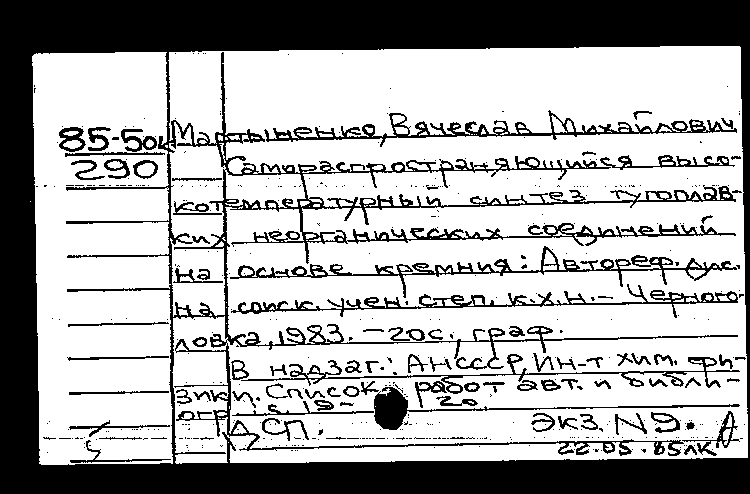 85-50к Мартыненко, Вячеслав Михайлович
290 Самораспространяющийся высо-
котемпературный синтез тугоплав-
ких неорганических соединений
на основе кремния: Автореф. дис.
на соиск. учен. степ. к.х.н. – Черного-
ловка, 1983. – 20с., граф.
В надзаг.: АН СССР, Ин-т хим. фи-
зики. Список работ авт. и библи-
огр.: с. 19-20
ДСП. Экз. N9.
22.05.85ЛК